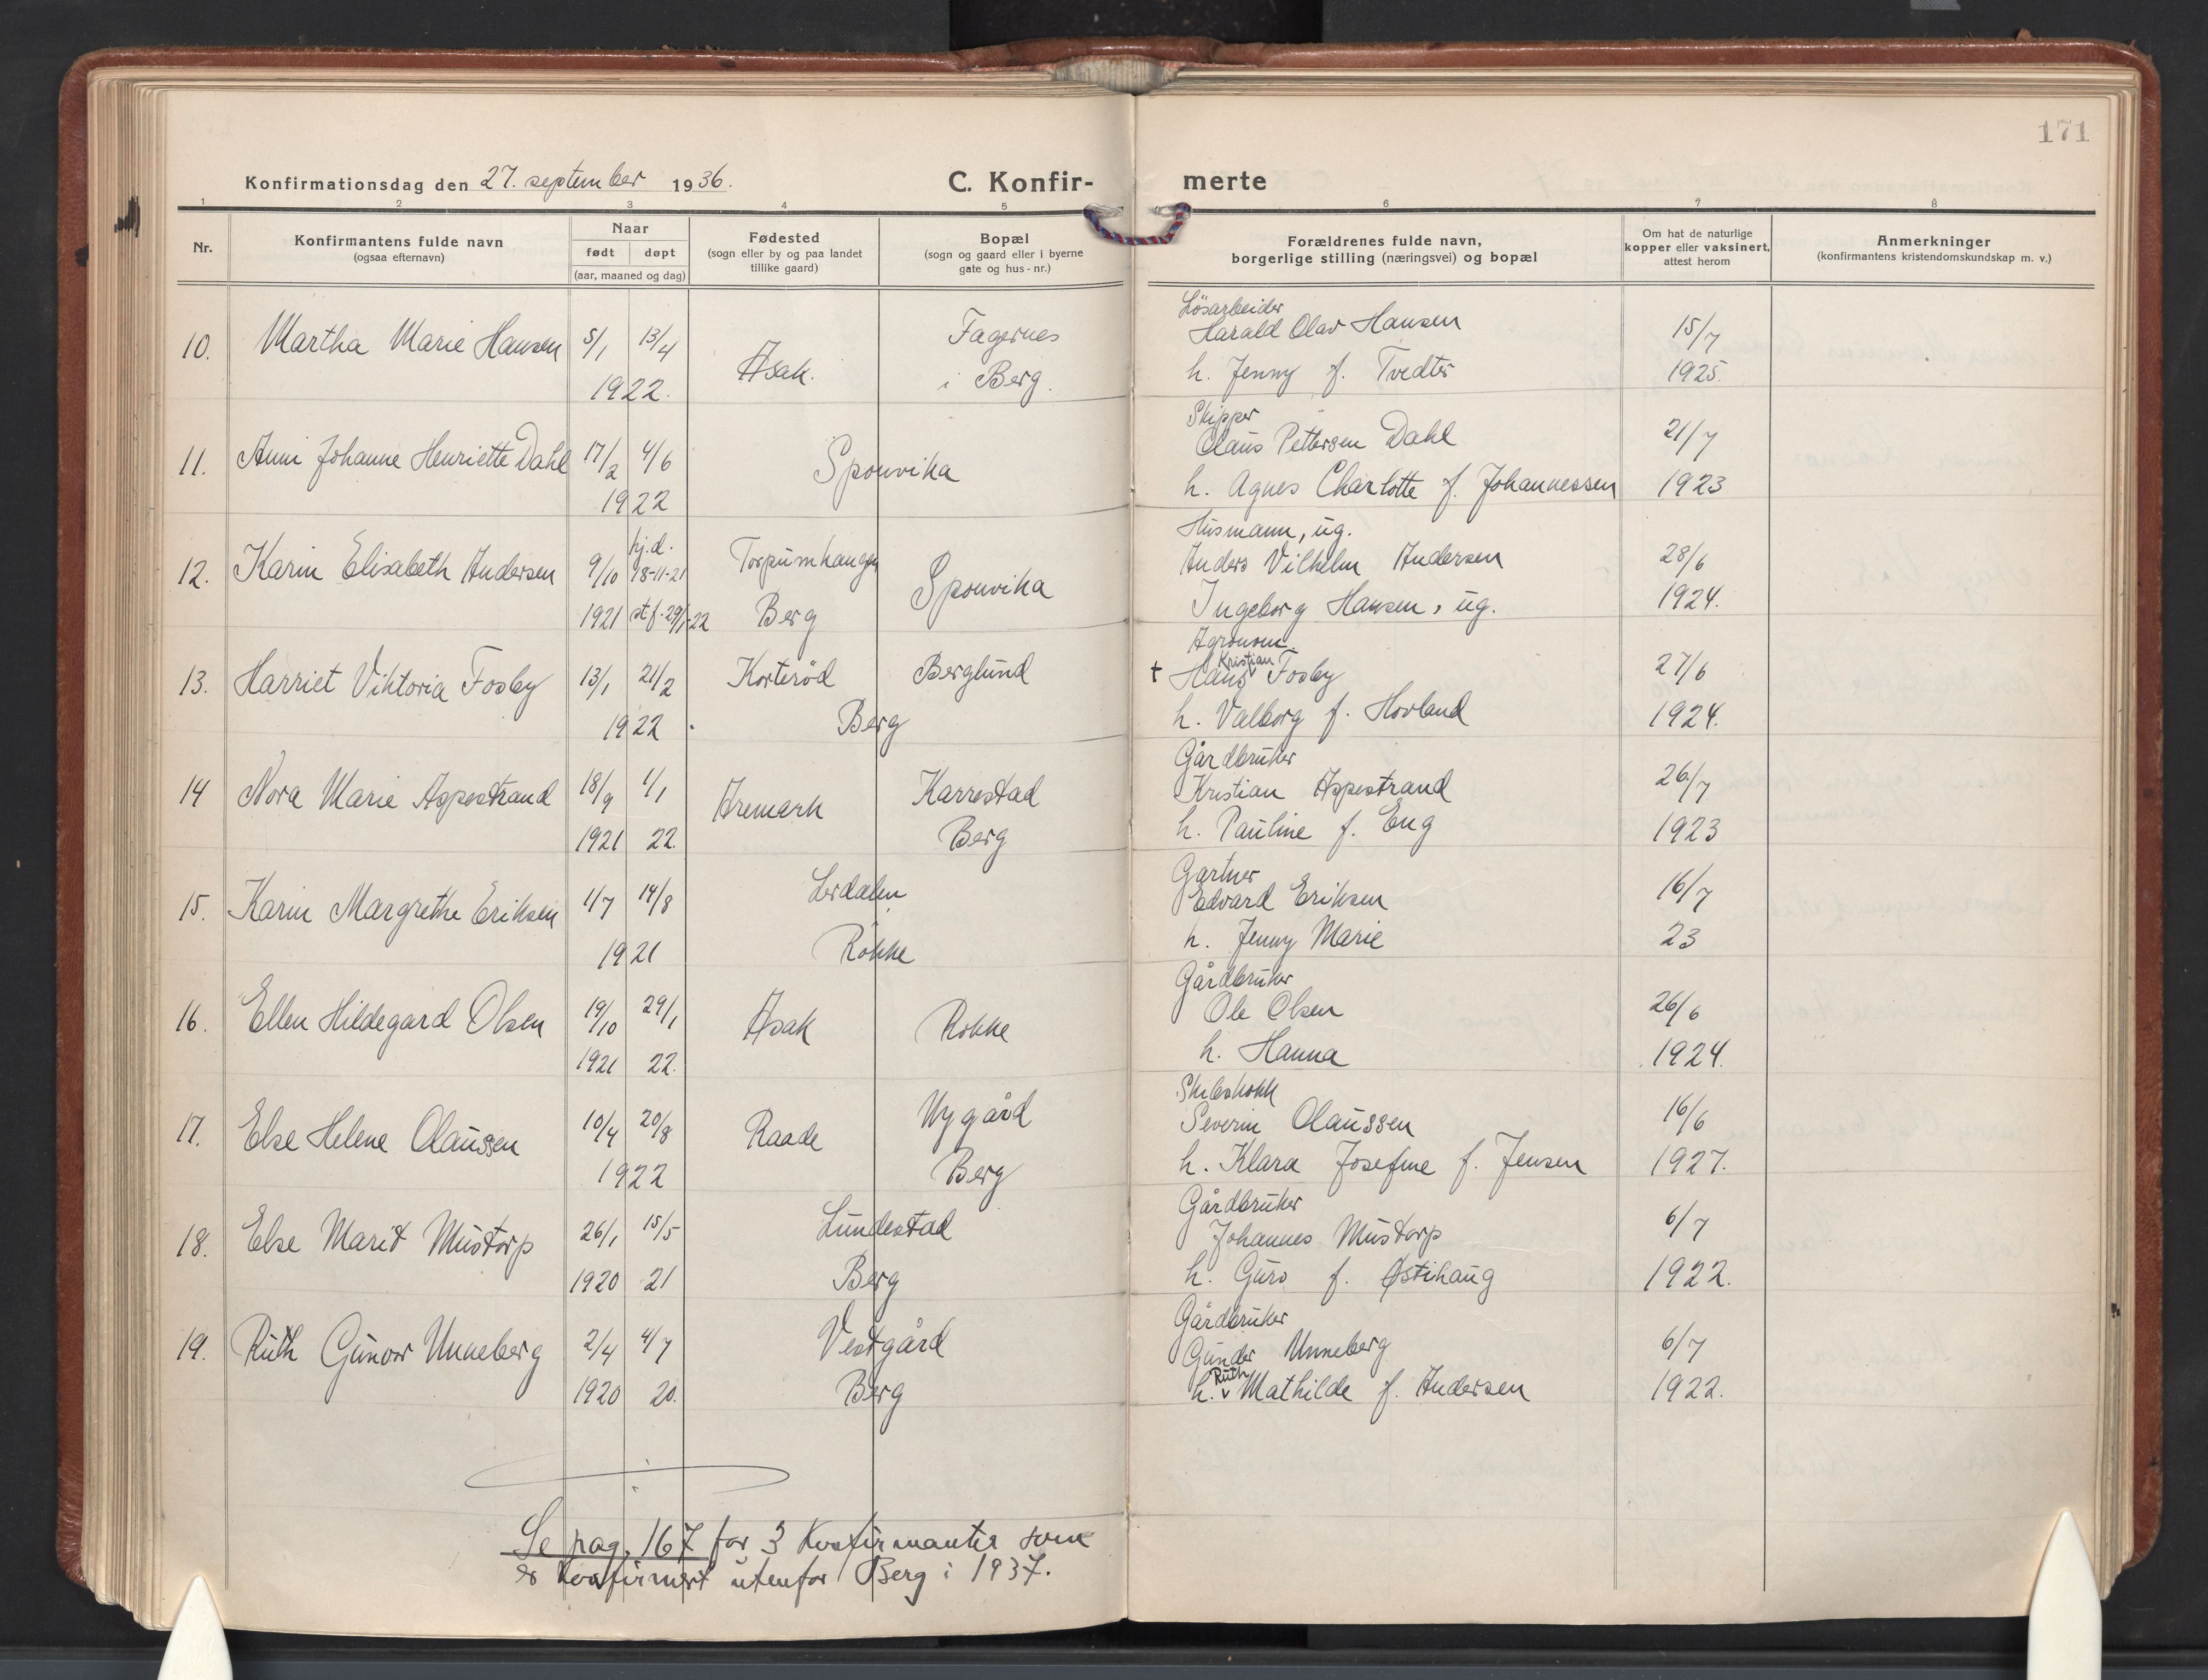 171
Konfirmationsdag den 27. september 1936.
C. Konfir-
merte
1 2 3 4 5 6 7 8
Nr.
Konfirmantens fulde navn
(ogsaa efternavn)
Naar
født døpt
(aar, maaned og dag)
Fødested
(sogn eller by og paa landet
tillike gaard)
Bopæl
(sogn og gaard eller i byerne
gate og hus-nr.)
Forældrenes fulde navn,
borgerlige stilling (næringsvei) og bopæl
Om hat de naturlige
kopper eller vaksinert,
attest herom
Anmerkninger
(konfirmantens kristendomskundskap m. v.)
Lösarbeider
10. Martha Marie Hansen 5/1 13/4 Asak. Fagernes Harald Olav Hansen 15/7
1922. i Berg. h. Jenny f. Tvedter 1925.
Skipper
11. Anni Johanne Henriette Dahl 17/2 4/6 Sponvika Claus Pettersen Dahl 21/7
1922 h. Agnes Charlotte f. Johannessen 1923
hj.d. Husmann, ug.
12. Karin Elisabeth Andersen 9/10 18-11-21 Torpumhaugen Sponvika Anders Vilhelm Andersen 28/6
1921 st.f. 29/1-22 Berg Ingeborg Hansen, ug. 1924.
Agronom
13. Harriet Viktoria Fosby 13/1 21/2 Korterød Berglund † Hans Kristian Fosby 27/6
1922 Berg h. Valborg f. Hovland 1924.
Gårdbruker
14 Nora Marie Aspestrand 18/9 1/1 Aremark Karrestad Kristian Aspestrand 26/7
1921 22. Berg h. Pauline f. Eng 1923
Gartner
15. Karin Margrethe Eriksen 1/7 14/8 Lerdalen Edvard Eriksen 16/7
1921 Rokke h. Jenny Marie 23
Gårdbruker
16. Ellen Hildegard Olsen 19/10 29/1 Asak Rokke Ole Olsen 26/6
1921 22. h. Hanna 1924.
Skibskokk
17. Else Helene Olaussen 10/4 20/8 Raade Nygård Severin Olaussen 16/6
1922 Berg h. Klara Josefine f. Jensen 1927.
Gårdbruker
18. Else Marit Mustorp 26/1 15/5 Lundestad Johannes Mustorp 6/7
1920 21 Berg h. Guro f. Østihaug 1922.
Gårdbruker
19. Ruth Gunvor Unneberg 2/4 4/7 Vestgård Gunder Unneberg 6/7
1920 20. Berg h. Ruth Mathilde f. Andersen 1922.
Se pag. 167 for 3 Konfirmanter som
er konfirmert utenfor Berg i 1937.